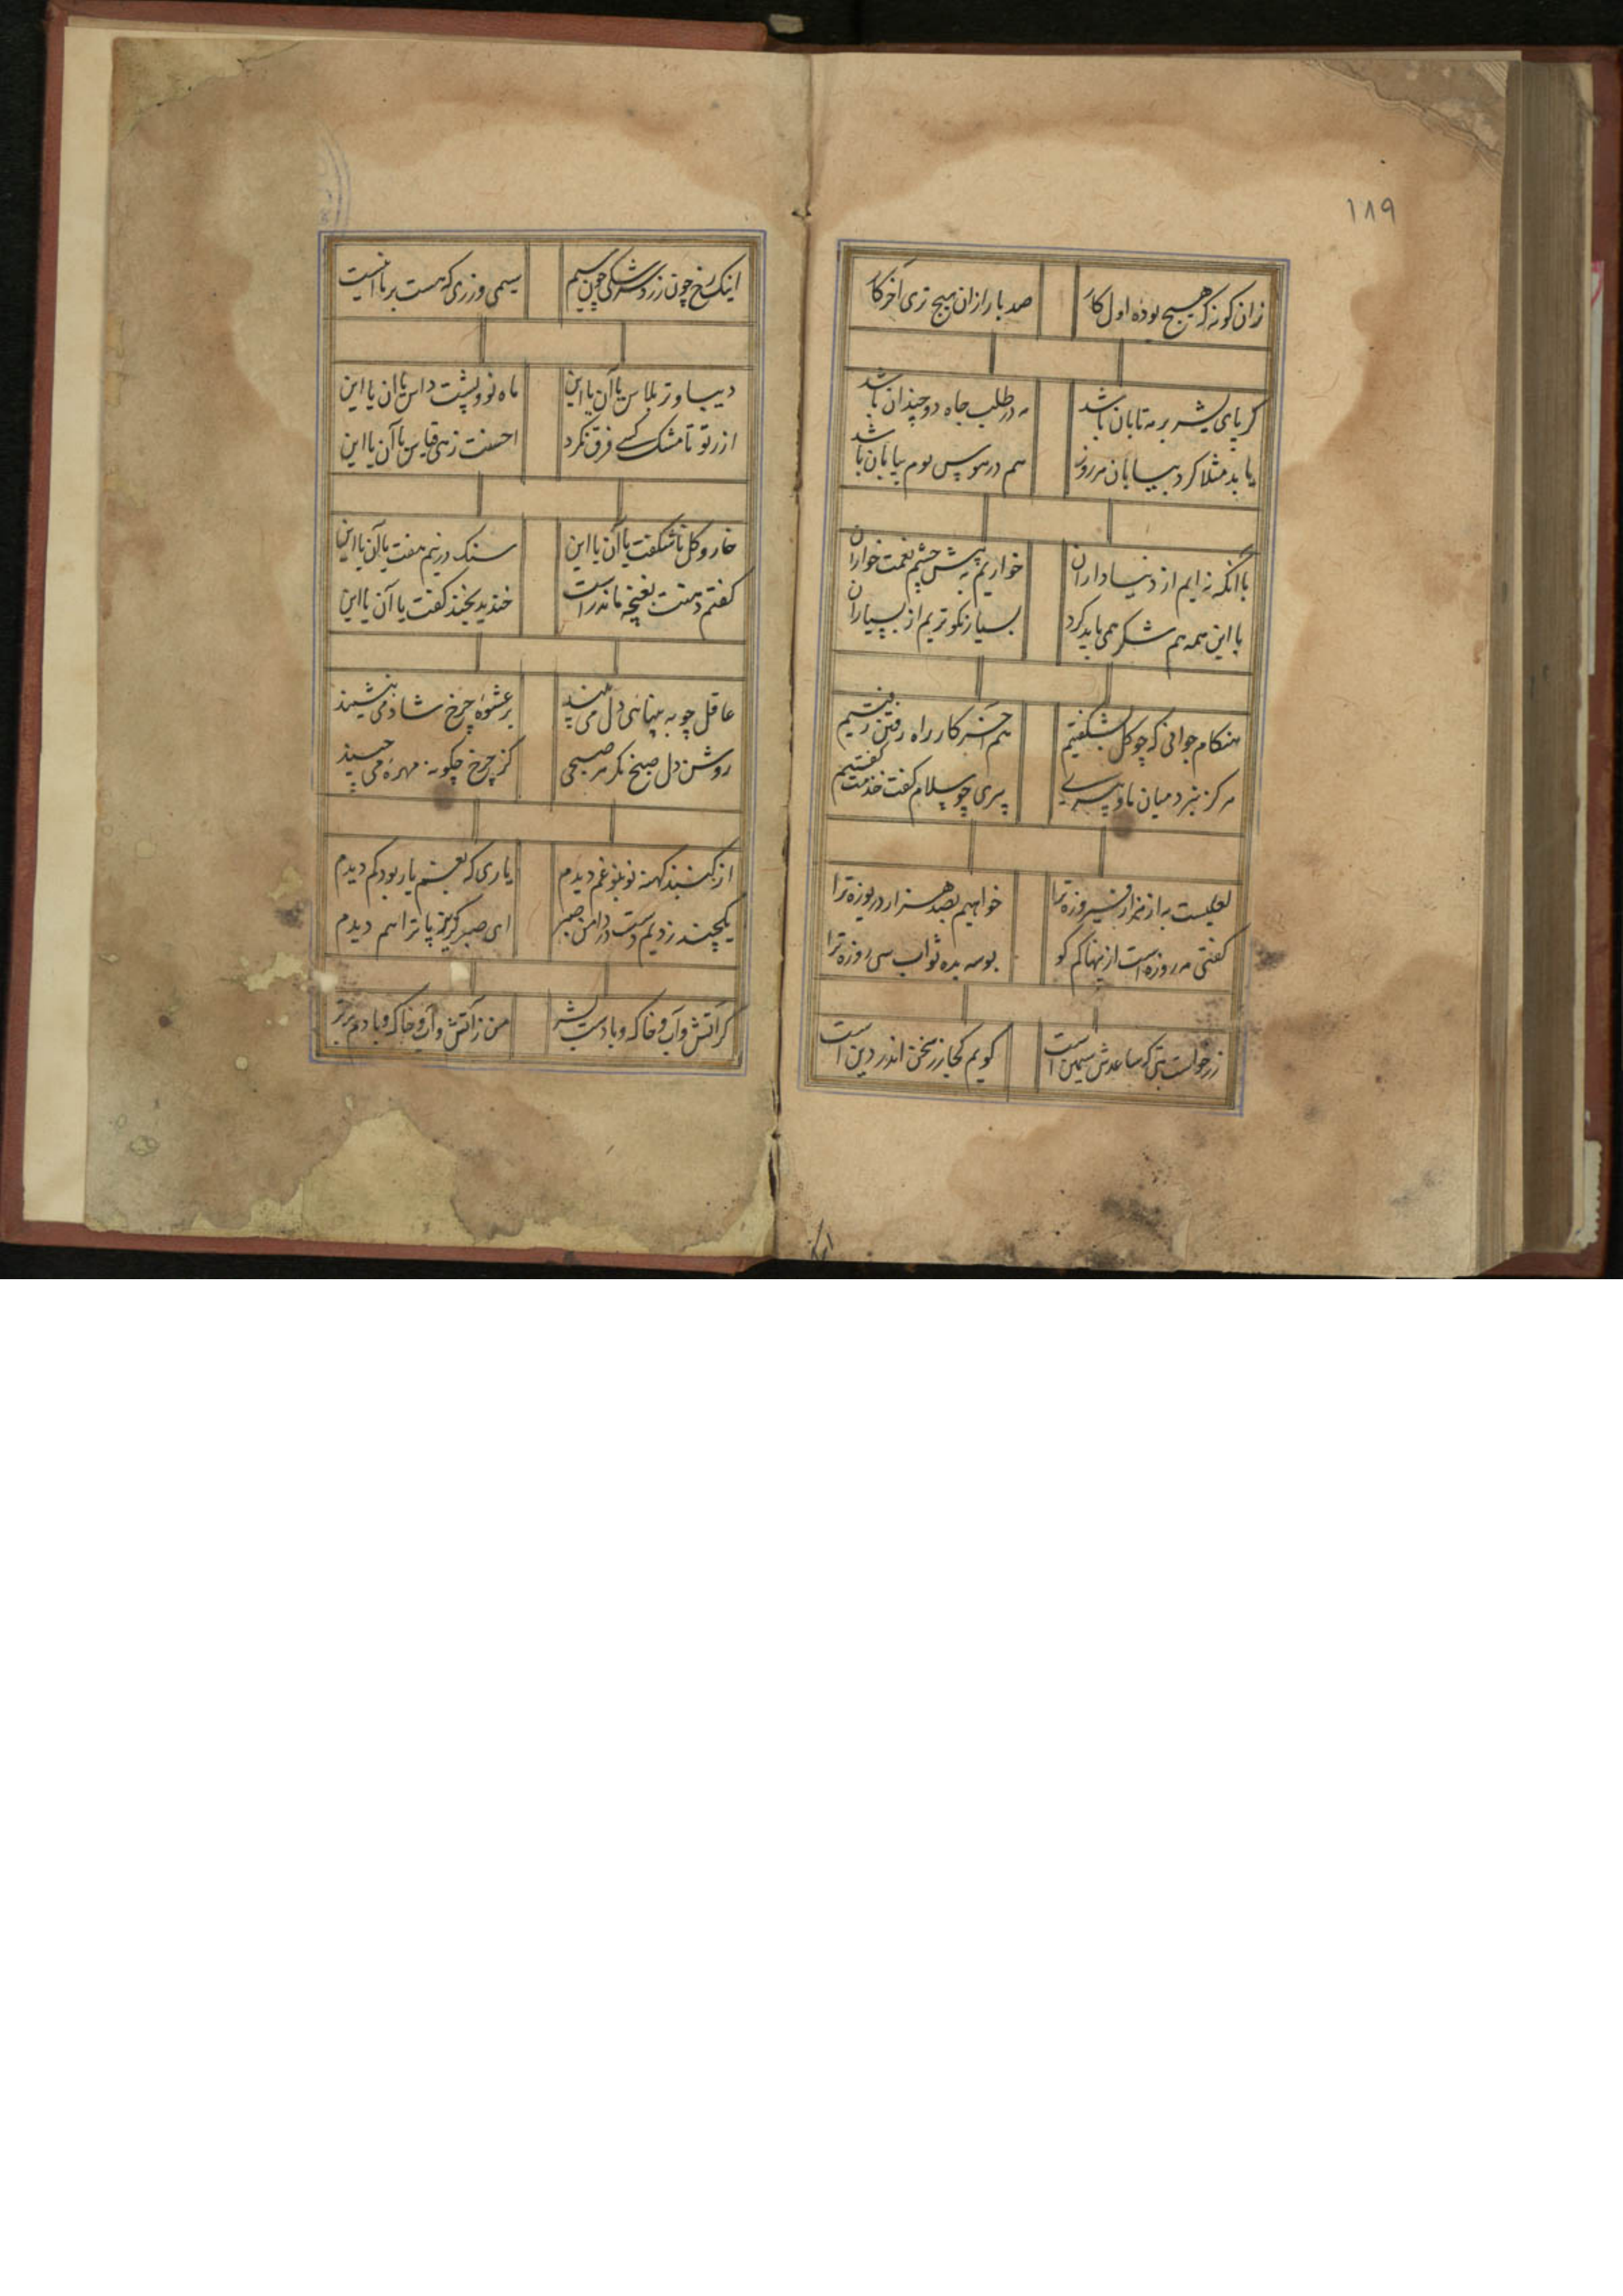 ۱۸۹
زان کونه که هیچ بوده اول کار صد بار ازان هیچ تری آخر کار
کر پای بشر بر مه تابان باشد در طلب جاه دو چندان باشد
یابد مثلا کرد بیابان هر روز هم در هوس بوم بیابان باشد
با آنکه نه ایم از دنیاداران خواریم به پیش چشم نعمت خواران
با این همه هم شکر همی باید کرد بسیار نکوتریم از بسیاران
هنکام جوانی که چو کل بشکفتیم هم آخر کار راه رفتن رفتیم
هرکز نبرد میان ما و پیری پیری چو سلام کفت خدمت کفتیم
لعلیست به از هزار فیروزه ترا خواهیم بصد هزار دریوزه ترا
کفتی مه روزه است ازینها کم کو بوسه بده ثواب سی روزه ترا
زر خواست بتی که ساعدش سیمین است کویم کجا زر سخن اندر دین است
اینک رخ چون زر و سرشکی چون سیم سیمی و زری که هست بر ما اینست
دیبا و تر پلاس یا آن یا این ماه نو و پشت داس یا آن یا این
از تو تا مشک کسی فرق نکرد احسنت زهی قیاس یا آن یا این
خار و کل ناشکفت یا آن یا این سنک و در نیم سفت یا آن یا این
کفتم دهنت بغنچه ماند راست خندید بخند کفت یا آن یا این
عاقل چو به پهنای دل می بیند بر عشوه چرخ شاد می ننشیند
روشن دل صبح نکر هر صبحی کز چرخ چکونه مهره می چیند
از کنبد کهنه نو بنو غم دیدم یاری که بغم یار بود کم دیدم
یکچند زدیم دست در دامن صبر ای صبر کریز پا ترا هم دیدم
کر آتش و آب و خاک و بادست بشر من ز آتش و آب و خاک و بادم برتر